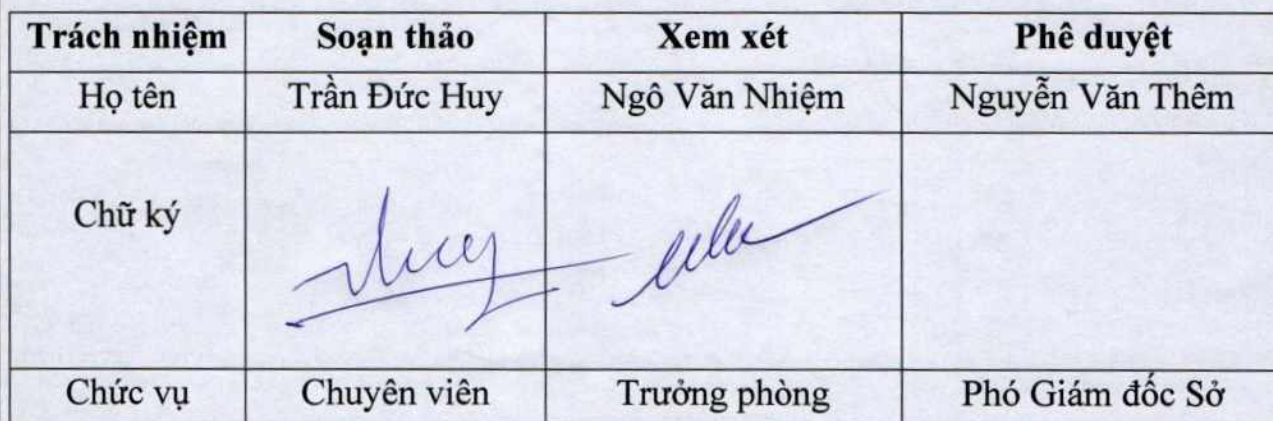 Trách nhiệm Soạn thảo Xem xét Phê duyệt
Họ tên Trần Đức Huy Ngô Văn Nhiệm Nguyễn Văn Thêm
Chữ ký
Chức vụ Chuyên viên Trưởng phòng Phó Giám đốc Sở